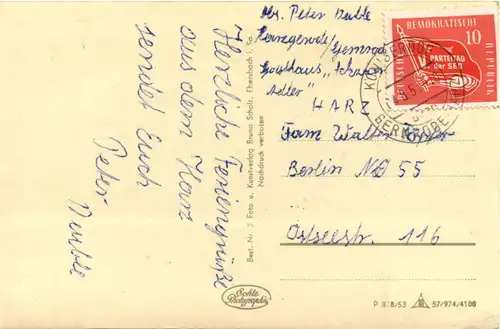 Herzliche Feriengrüße
aus dem Harz
sendet Euch
Peter
Best. Nr. 7 Foto u. Kunstverlag Bruno Scholz, Ebersbach i. Sa.
Nachdruck verboten
Abs. Peter
Harzgerode /
Gasthaus „Schwarzer
Adler"
HARZ
Fam Walter
Berlin NO 55
Ostseestr. 116
DEMOKRATISCHE
REPUBLIK
10
PARTEITAG
der SED
GERNRODE
Echte
Photographie
P 818/53 57/974/4100